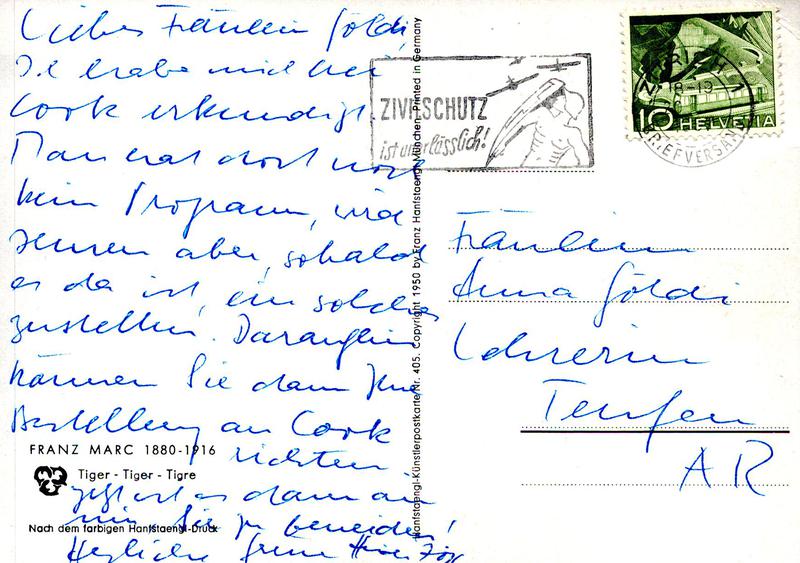 Liebes Fräulein Göldi,
Ich habe mich bei
Cook erkundigt.
Man hat dort noch
kein Programm, wird
Ihnen aber, sobald
es da ist, ein solches
zustellen. Daraufhin
können Sie dann Ihre
Bestellung an Cook
richten.
Jetzt ist es dann an
mir Sie zu beneiden!
Herzliche Grüsse
FRANZ MARC 1880-1916
Tiger - Tiger - Tigre
Nach dem farbigen Hanfstaengl-Druck
Hanfstaengl-Künstlerpostkarte Nr. 405. Copyright 1950 by Franz Hanfstaengl, München. Printed in Germany
ZIVILSCHUTZ
ist unerlässlich!
18-19
BRIEFVERSAND
10 HELVETIA
Fräulein
Anna Göldi
Lehrerin
Teufen
AR